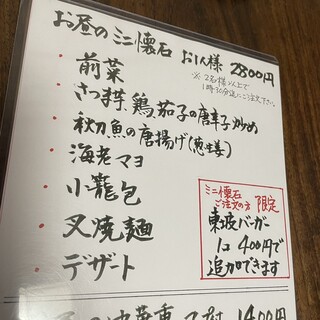 お昼のミニ懐石 お1人様 2800円
※2名様以上で
1時30分迄にご注文下さい。
・前菜
・さつま芋、鶏、茄子の唐辛子炒め
・秋刀魚の唐揚げ(葱生姜)
・海老マヨ
・小籠包
・叉焼麺
・デザート
ミニ懐石
ご注文の方 限定
東坡バーガー
1コ 400円で
追加できます
1400円